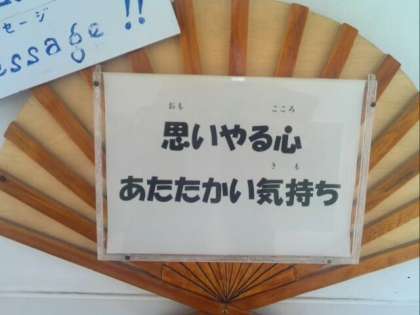 セージ
essage !!
おも こころ
思いやる心
き も
あたたかい気持ち